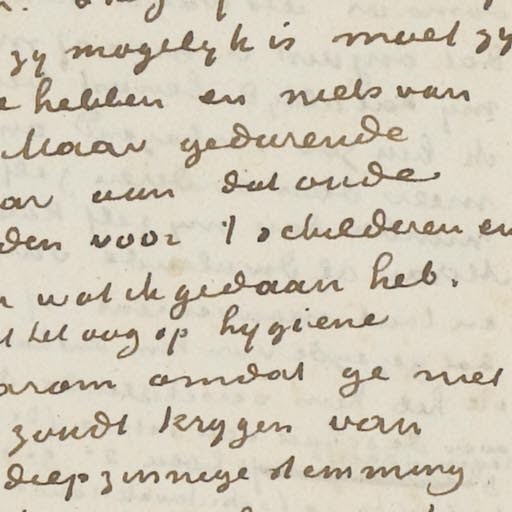 zy mogelyk is moet zy
hebben en niets van
Maar gedurende
aan dat oude
den voor 't schilderen en
wat ik gedaan heb.
het oog op hygiene
arom omdat ge niet
zoudt krygen van
diepzinnige stemming